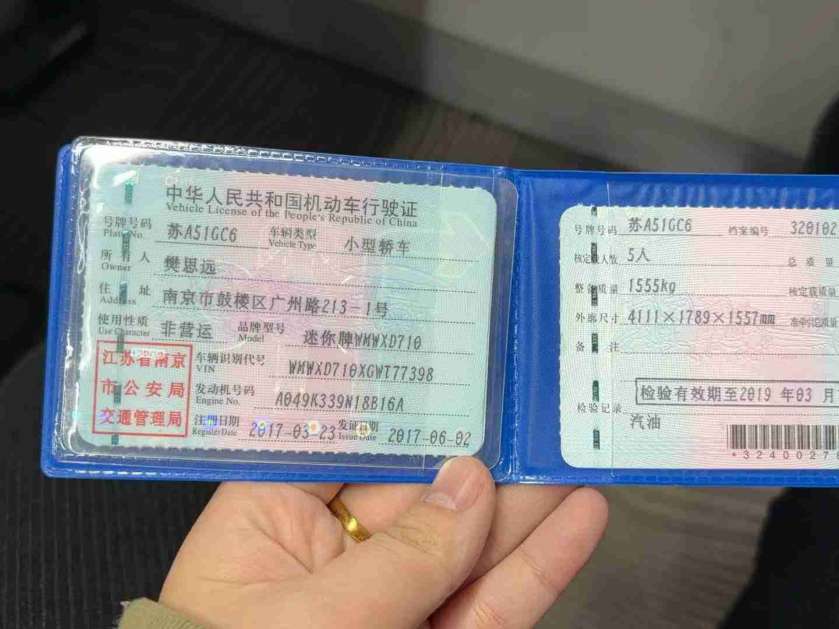 中华人民共和国机动车行驶证
Vehicle License of the People's Republic of China
号牌号码 苏A51GC6 车辆类型 小型轿车
Plate No. Vehicle Type
所有人 樊思远
Owner
住址 南京市鼓楼区广州路213-1号
Address
使用性质 非营运 品牌型号 迷你牌WMWXD710
Use Character Model
江苏省南京
市公安局
交通管理局
车辆识别代号 WMWXD710XGWT77398
VIN
发动机号码 A049K339N18B16A
Engine No.
注册日期 2017-03-23 发证日期 2017-06-02
Register Date Issue Date
号牌号码 苏A51GC6 档案编号 320102
核定载人数 5人 总质量
整备质量 1555kg 核定载质量
外廓尺寸 4111×1789×1557mm
备注
检验有效期至2019 年03 月
检验记录
汽油
*32400278